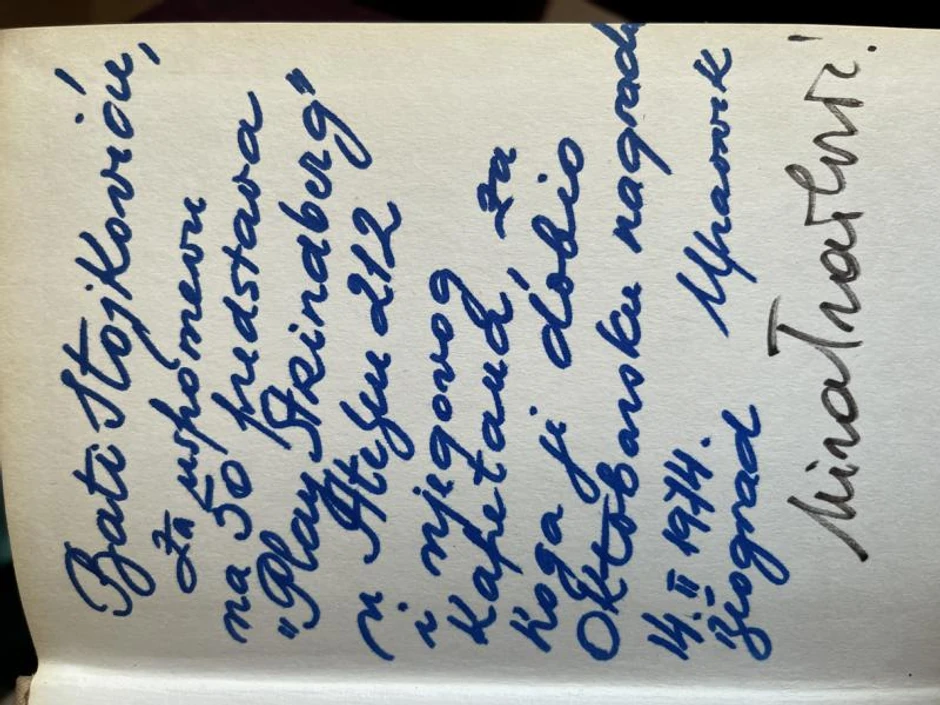 Bati Stojkoviću,
za uspomenu
na 50 predstava
"Play Strindberg"
u Ateljeu 212
i njegovog
Kapetana, za
koga je dobio
Oktobarsku nagradu
14. II 1974. Upravnik
Beograd
Mira Trailović!